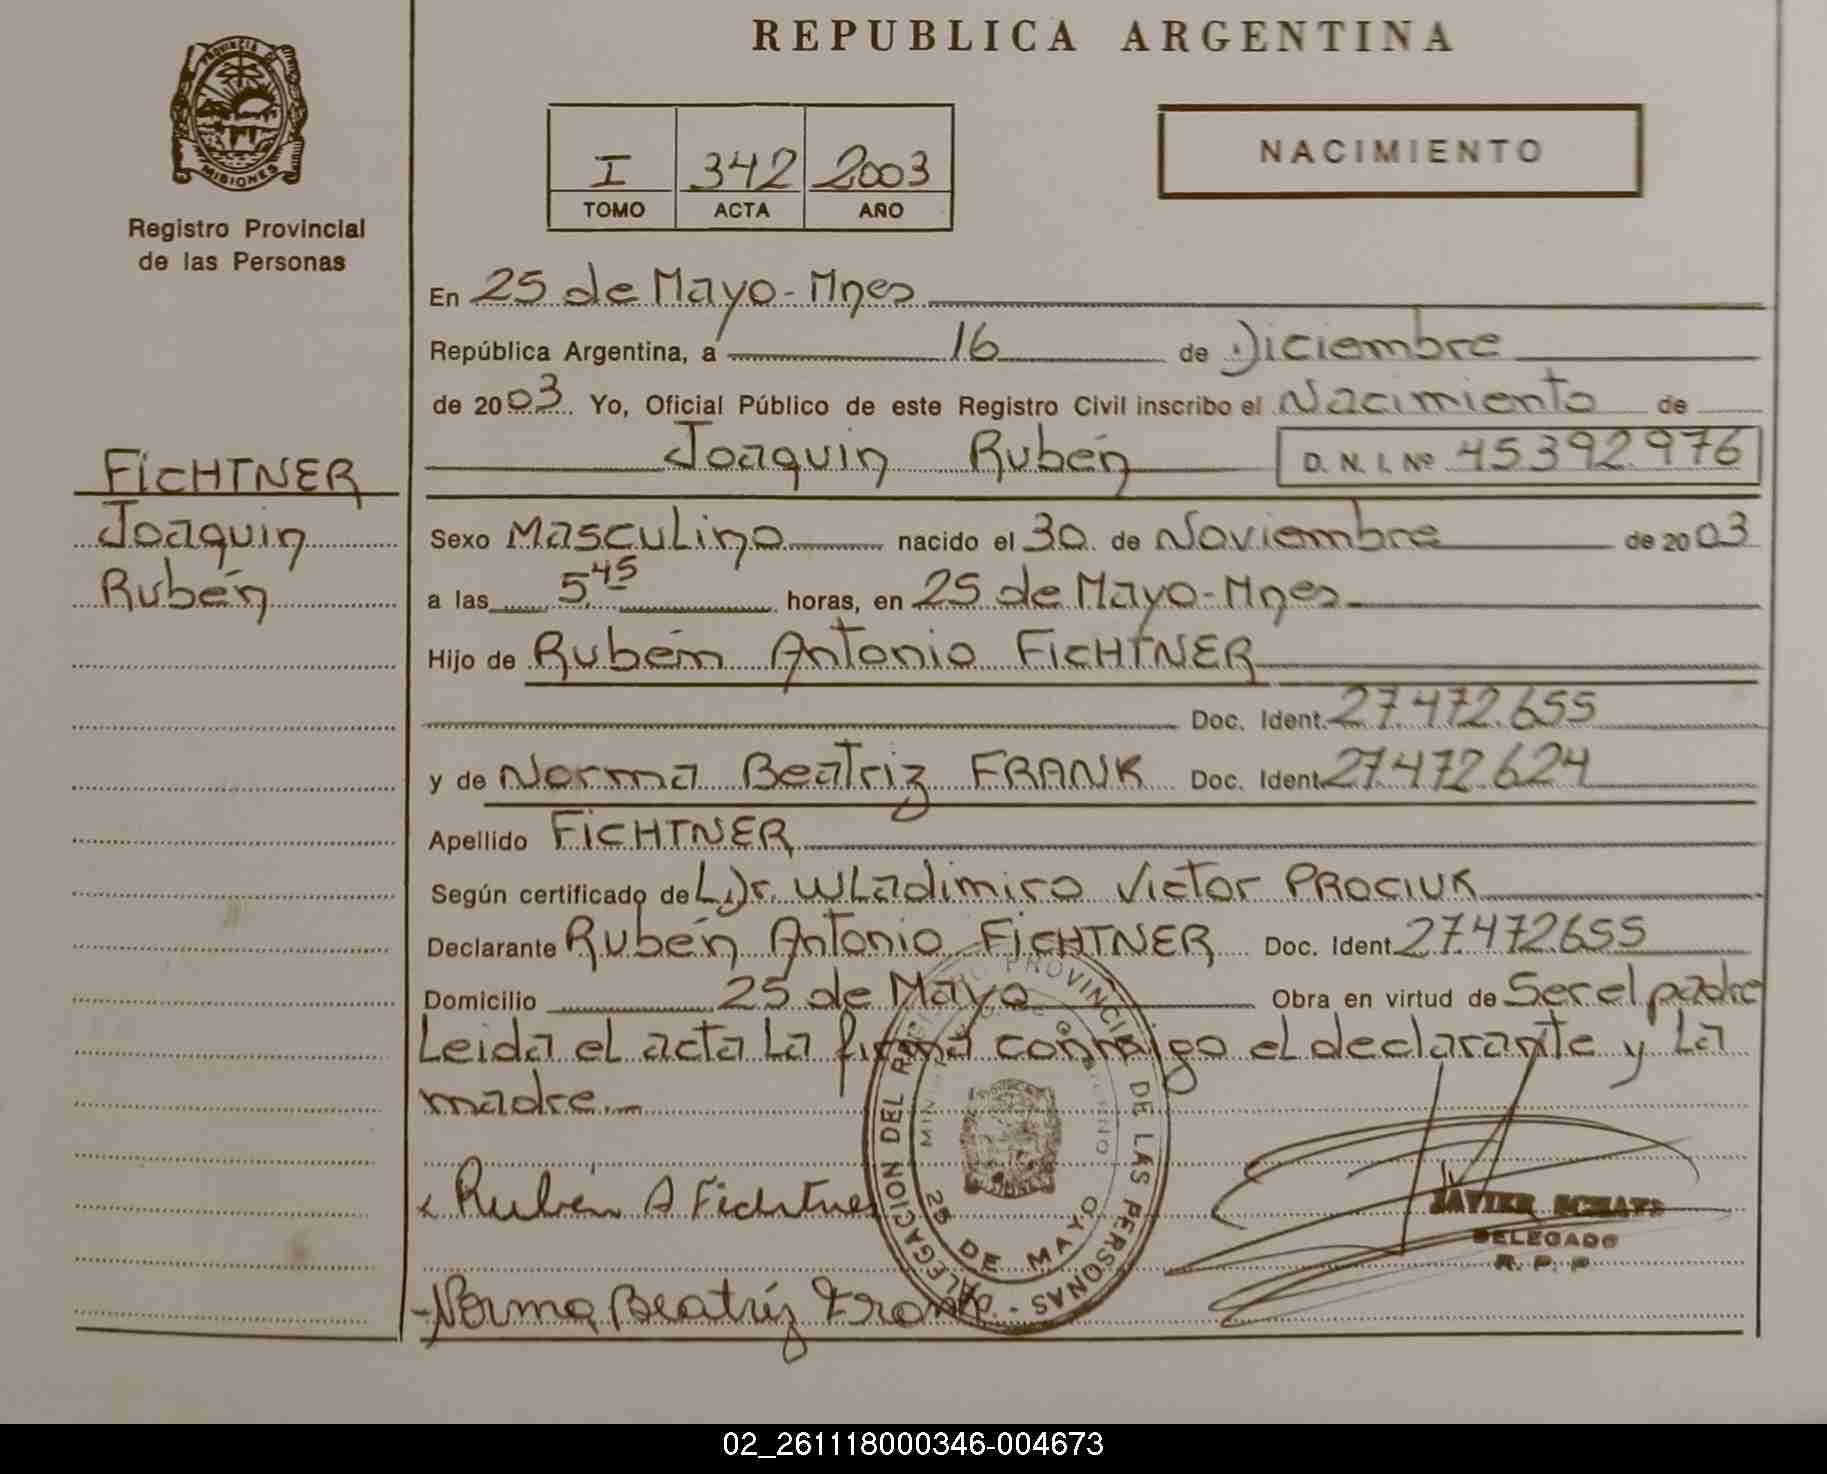 REPUBLICA ARGENTINA
PROVINCIA DE MISIONES
Registro Provincial
de las Personas
I 342 2003
TOMO ACTA AÑO
NACIMIENTO
FiCHTNER
Joaquin
Rubén
En 25 de Mayo - Mnes
República Argentina, a 16 de Diciembre
de 2003. Yo, Oficial Público de este Registro Civil inscribo el Nacimiento de
Joaquin Rubén D. N. I. Nº 45392.976
Sexo Masculino nacido el 30 de Noviembre de 2003
a las 5,45 horas, en 25 de Mayo - Mnes.
Hijo de Rubén Antonio FiCHTNER
Doc. Ident. 27.472.655
y de Norma Beatriz FRANK Doc. Ident. 27.472.624
Apellido FiCHTNER
Según certificado de L Dr. Wladimiro Victor PROCIUK
Declarante Rubén Antonio FiCHTNER Doc. Ident. 27.472.655
Domicilio 25 de Mayo Obra en virtud de Ser el padre
Leida el acta La firma conmigo el declarante y La
madre.-
Rubén A Fichtner
Norma Beatriz Frank
DELEGACION DEL REGISTRO PROVINCIAL DE LAS PERSONAS
MINISTERIO DE GOBIERNO
25 DE MAYO
JAVIER
DELEGADO
R. P. P
02_261118000346-004673